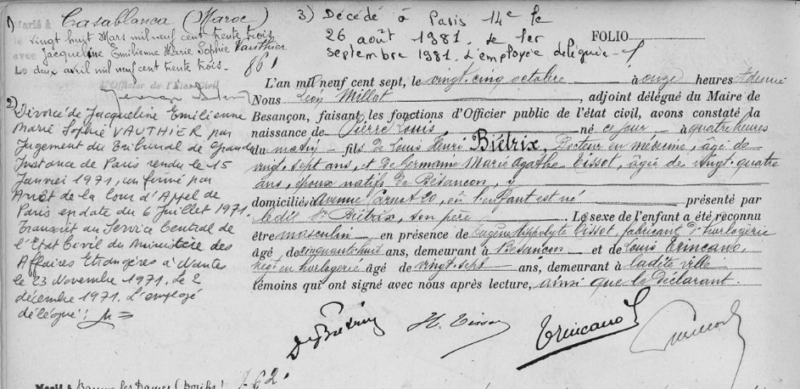 1) Marié à Casablanca (Maroc)
le vingt huit Mars mil neuf cent trente trois
avec Jacqueline Emilienne Marie Sophie Vauthier
Le deux avril mil neuf cent trente trois.
L'Officier de l'Etat civil
2) Divorcé de Jacqueline Emilienne
Marie Sophie VAUTHIER par
Jugement du Tribunal de Grande
Instance de Paris rendu le 15
Janvier 1971, confirmé par
Arrêt de la Cour d'Appel de
Paris en date du 6 Juillet 1971.
Transcrit au Service Central de
l'Etat Civil du Ministère des
Affaires Etrangères à Nantes
le 23 Novembre 1971. Le 2
décembre 1971. L'employé
délégué :
3) Décédé à Paris 14e le
26 août 1981. Le 1er
septembre 1981. L'employée déléguée
FOLIO
861
L'an mil neuf cent sept, le vingt-cinq octobre à onze heures
Nous Léon Millot, adjoint délégué du Maire de
Besançon, faisant les fonctions d'Officier public de l'état civil, avons constaté la
naissance de Pierre Louis né ce jour à quatre heures
du matin fils de Louis Henri Biétrix, Docteur en médecine, âgé de
vingt-sept ans, et de Germaine Marie Agathe Tissot, âgée de vingt-quatre
ans, époux natifs de Besançon, y
domiciliés, avenue Carnot 20, où l'enfant est né présenté par
ledit Sr Biétrix, son père. Le sexe de l'enfant a été reconnu
être masculin en présence de Eugène Hippolyte Tissot, fabricant d'horlogerie
âgé de cinquante huit ans, demeurant à Besançon et de Louis Trincano,
Négt en horlogerie âgé de vingt-sept ans, demeurant à ladite ville
témoins qui ont signé avec nous après lecture, ainsi que le déclarant.
Dr Biétrix H. Tissot Trincano L
Marié à Baume les Dames (Doubs)
862